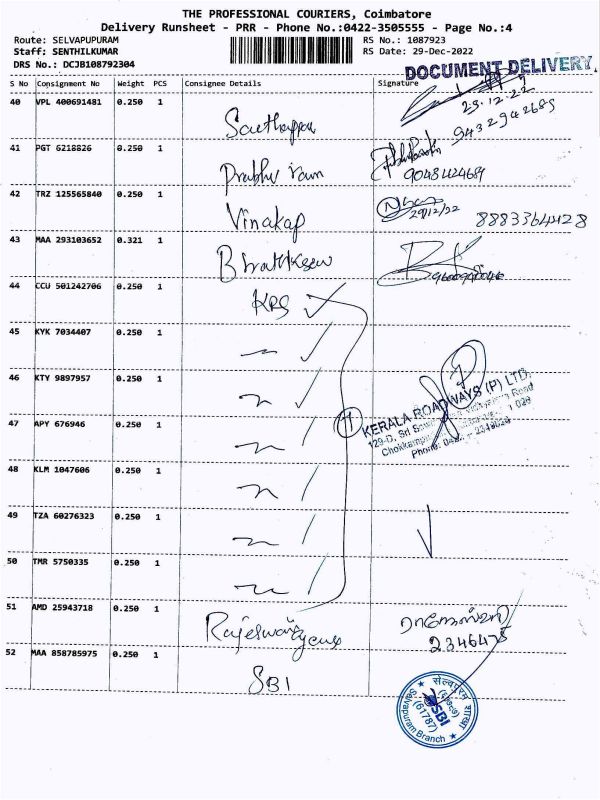 THE PROFESSIONAL COURIERS, Coimbatore
Delivery Runsheet - PRR - Phone No.:0422-3505555 - Page No.:4
Route: SELVAPUPURAM RS No.: 1087923
Staff: SENTHILKUMAR RS Date: 29-Dec-2022
DRS No.: DCJB108792304
DOCUMENT DELIVERY.
S No Consignment No Weight PCS Consignee Details Signature
29.12.22
40 VPL 400691481 0.250 1
9432942685
41 PGT 6218826 0.250 1 Prabhu ram
9048424689
42 TRZ 125565840 0.250 1 Vinakap 29/12/22 8883364428
43 MAA 293103652 0.321 1
44 CCU 501242706 0.250 1 KRS
45 KYK 7034407 0.250 1
46 KTY 9897957 0.250 1
KERALA ROADWAYS (P) LTD.
47 APY 676946 0.250 1
129-D, Sri Road
Phone:
48 KLM 1047606 0.250 1
49 TZA 60276323 0.250 1
50 TMR 5750335 0.250 1
51 AMD 25943718 0.250 1
2346475
52 MAA 858785975 0.250 1 SBI
सेल्वापुरम शाखा
SBI
(61787)
Selvapuram Branch